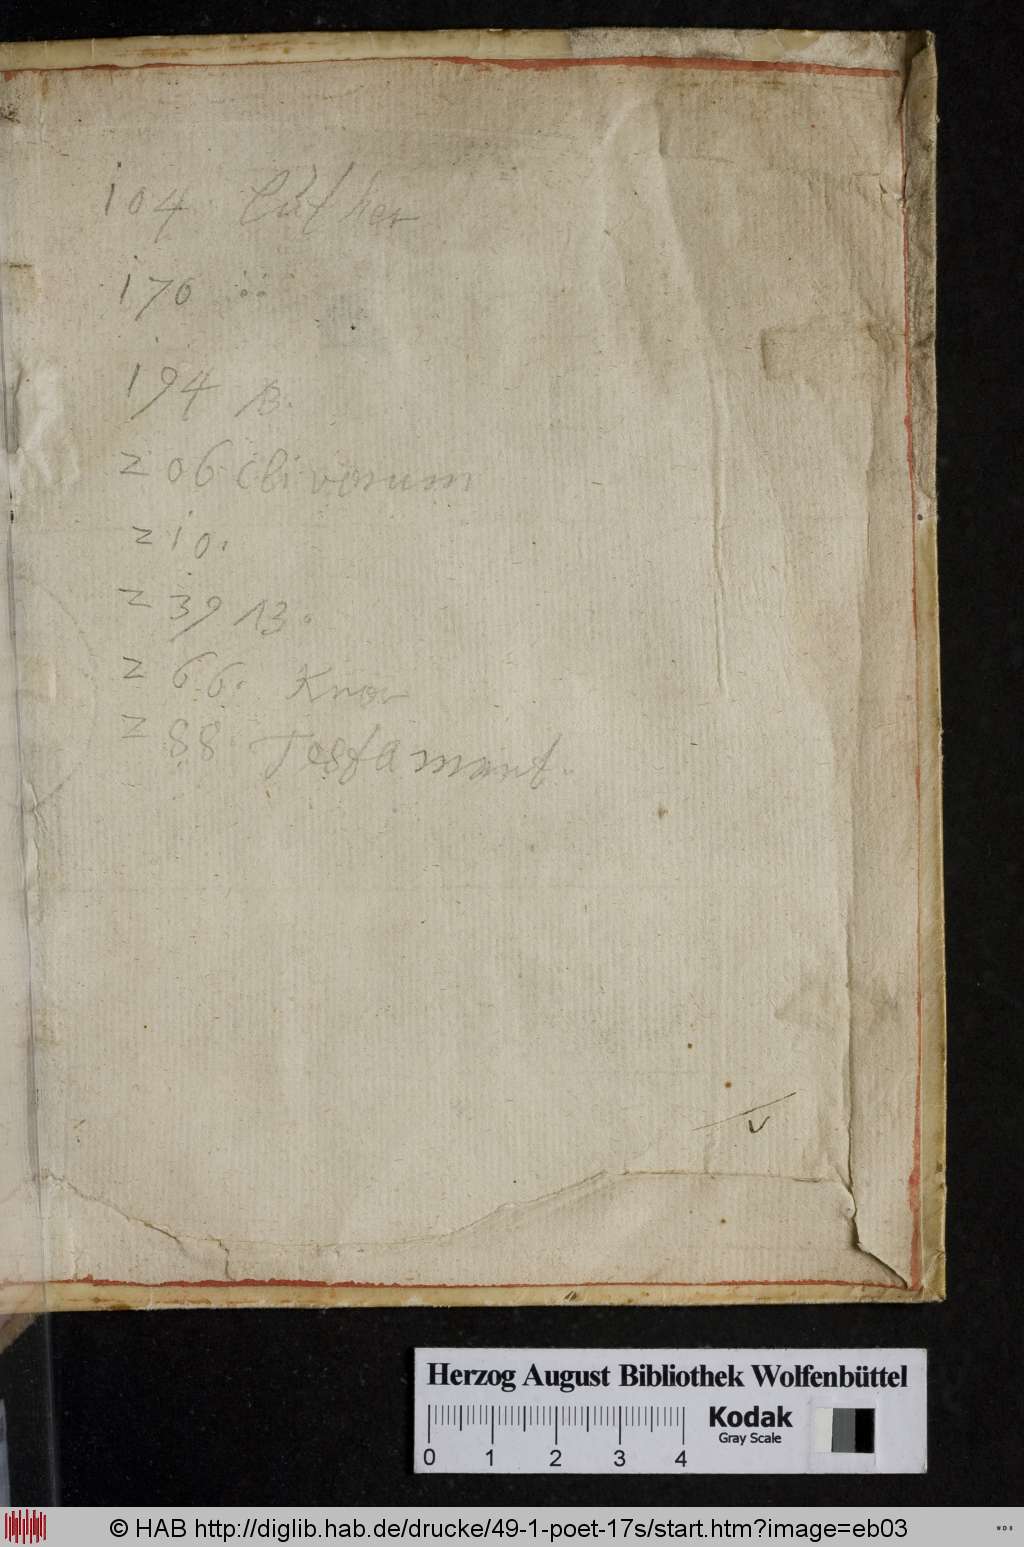 104 Luther
170
194 B.
206 Clivorum
210.
239 13.
266.
288 Testament.
v
Herzog August Bibliothek Wolfenbüttel
Kodak
Gray Scale
0 1 2 3 4
© HAB http://diglib.hab.de/drucke/49-1-poet-17s/start.htm?image=eb03